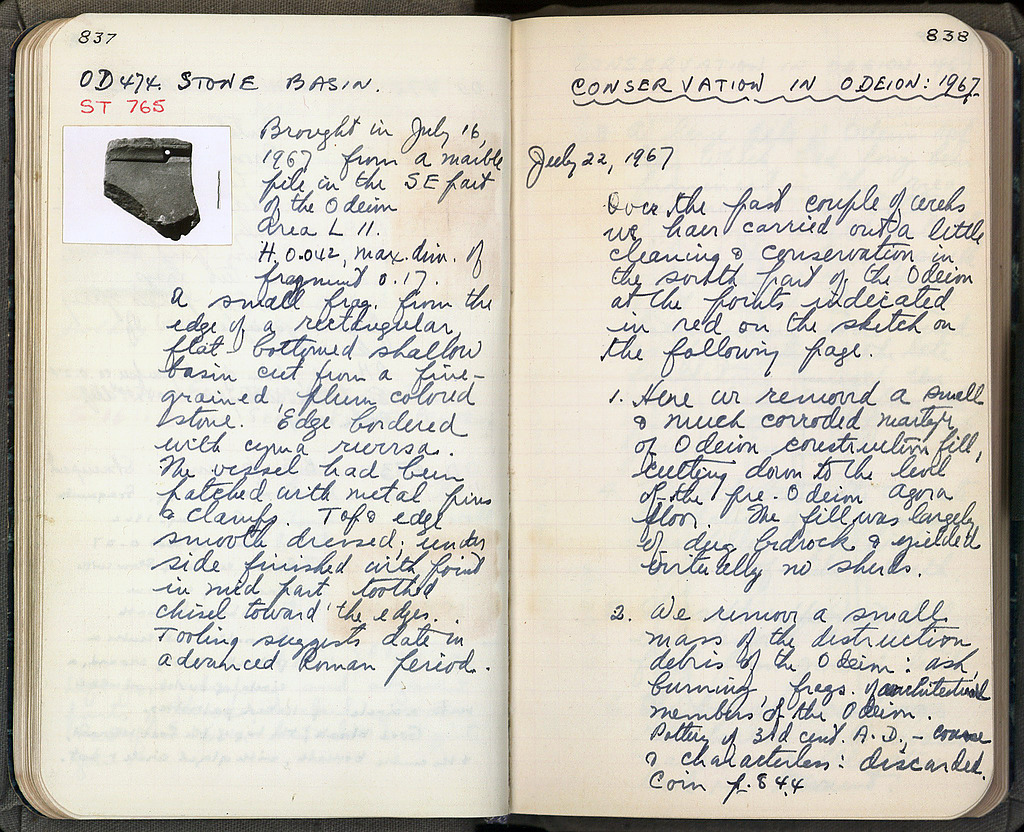 837
OD 474. STONE BASIN.
ST 765
Brought in July 16,
1967 from a marble
pile in the SE part
of the Odeion
Area L 11.
H. 0.042, max. dim. of
fragment 0.17.
A small frag. from the
edge of a rectangular,
flat-bottomed shallow
basin cut from a fine-
grained, plum colored
stone. Edge bordered
with cyma reversa.
The vessel had been
patched with metal pins
& clamps. Top & edge
smooth dressed; under
side finished with point
in mid part toothed
chisel toward the edges.
Tooling suggests date in
advanced Roman period.
838
CONSERVATION IN ODEION: 1967
July 22, 1967
Over the past couple of weeks
we have carried out a little
cleaning & conservation in
the south part of the Odeion
at the points indicated
in red on the sketch on
the following page.
1. Here we removed a small
& much corroded
of Odeion construction fill,
cutting down to the level
of the pre-Odeion agora
floor. The fill was largely
of dug bedrock & yielded
virtually no sherds.
2. We remove a small
mass of the destruction
debris of the Odeion: ash,
burning, frags. of architectural
members of the Odeion.
Pottery of 3rd cent. A.D., - coarse
& characterless: discarded.
Coin p. 844